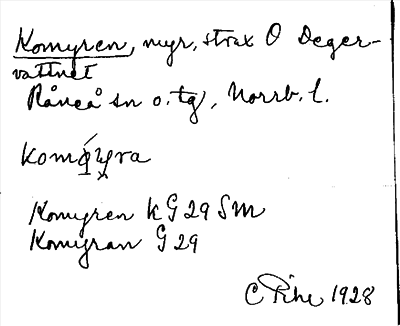 Komyren, myr, strax O Deger-
vattnet
Råneå sn o. tg, Norrb. l.
komýra
Komyren kG29 SM
Komyran G29
C Pihe 1928